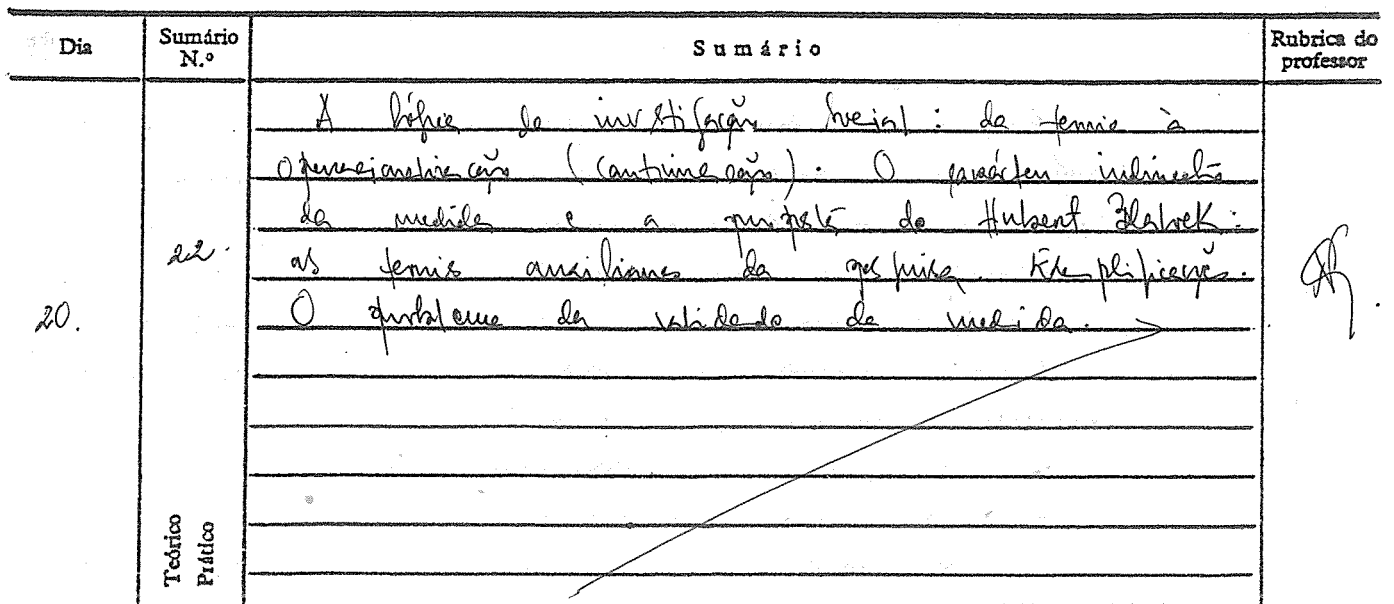 Dia Sumário N.º Sumário Rubrica do professor
A lógica da investigação social: da teoria à
operacionalização (continuação). O carácter indirecto
da medida e a proposta de Hubert Blalock:
22. as teorias auxiliares da pesquisa. Exemplificação.
20. O problema da validade da medida.
Teórico
Prático